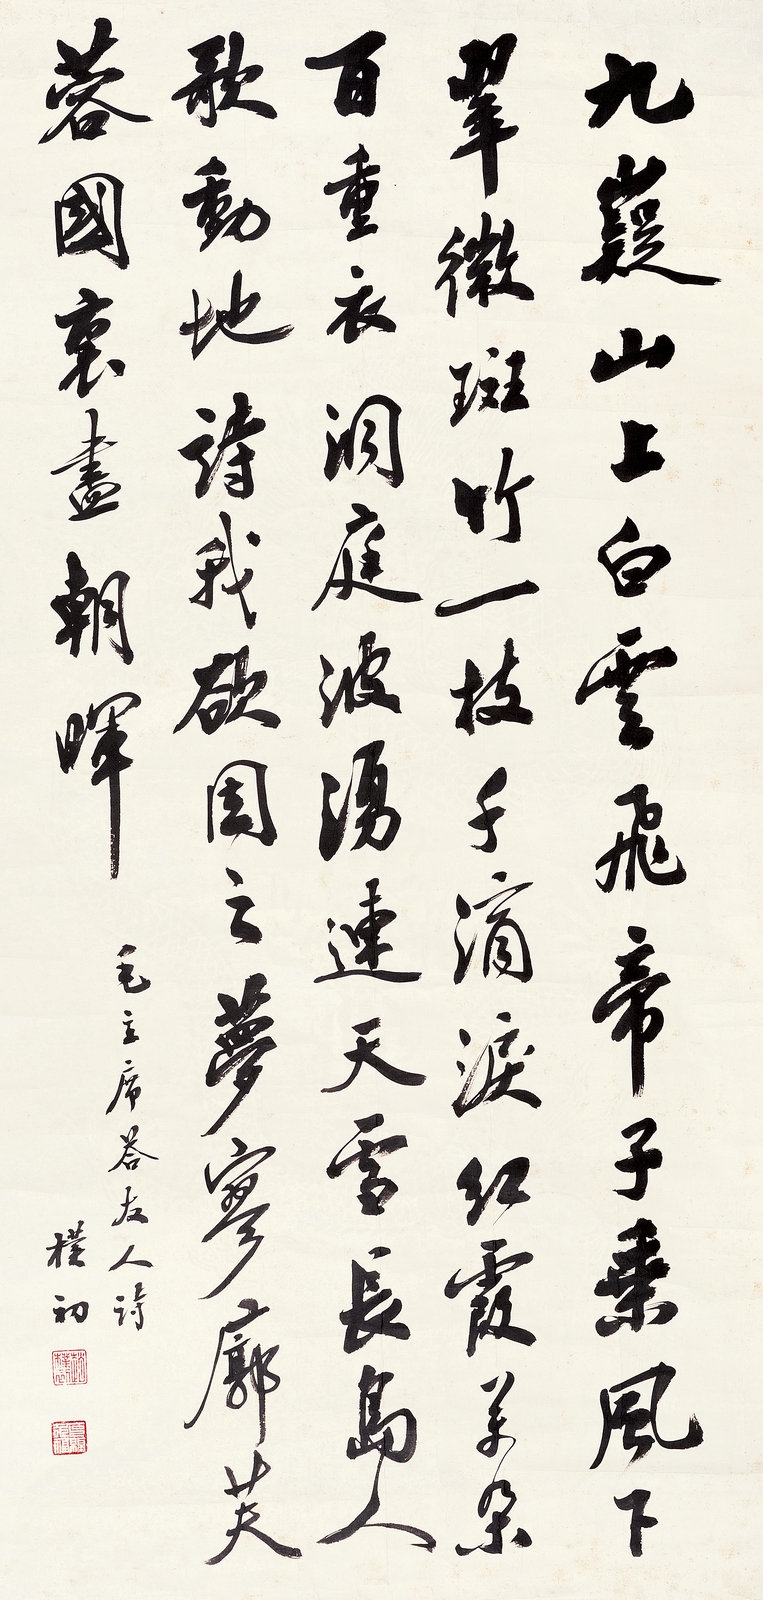 九嶷山上白雲飛帝子乘風下
翠微斑竹一枝千滴淚紅霞萬朵
百重衣洞庭波湧連天雪長島人
歌動地詩我欲因之夢寥廓芙
蓉國裏盡朝暉
毛主席荅友人詩
樸初